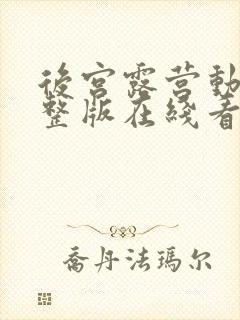 後宮露营動
整版在綫看
喬丹法瑪尔